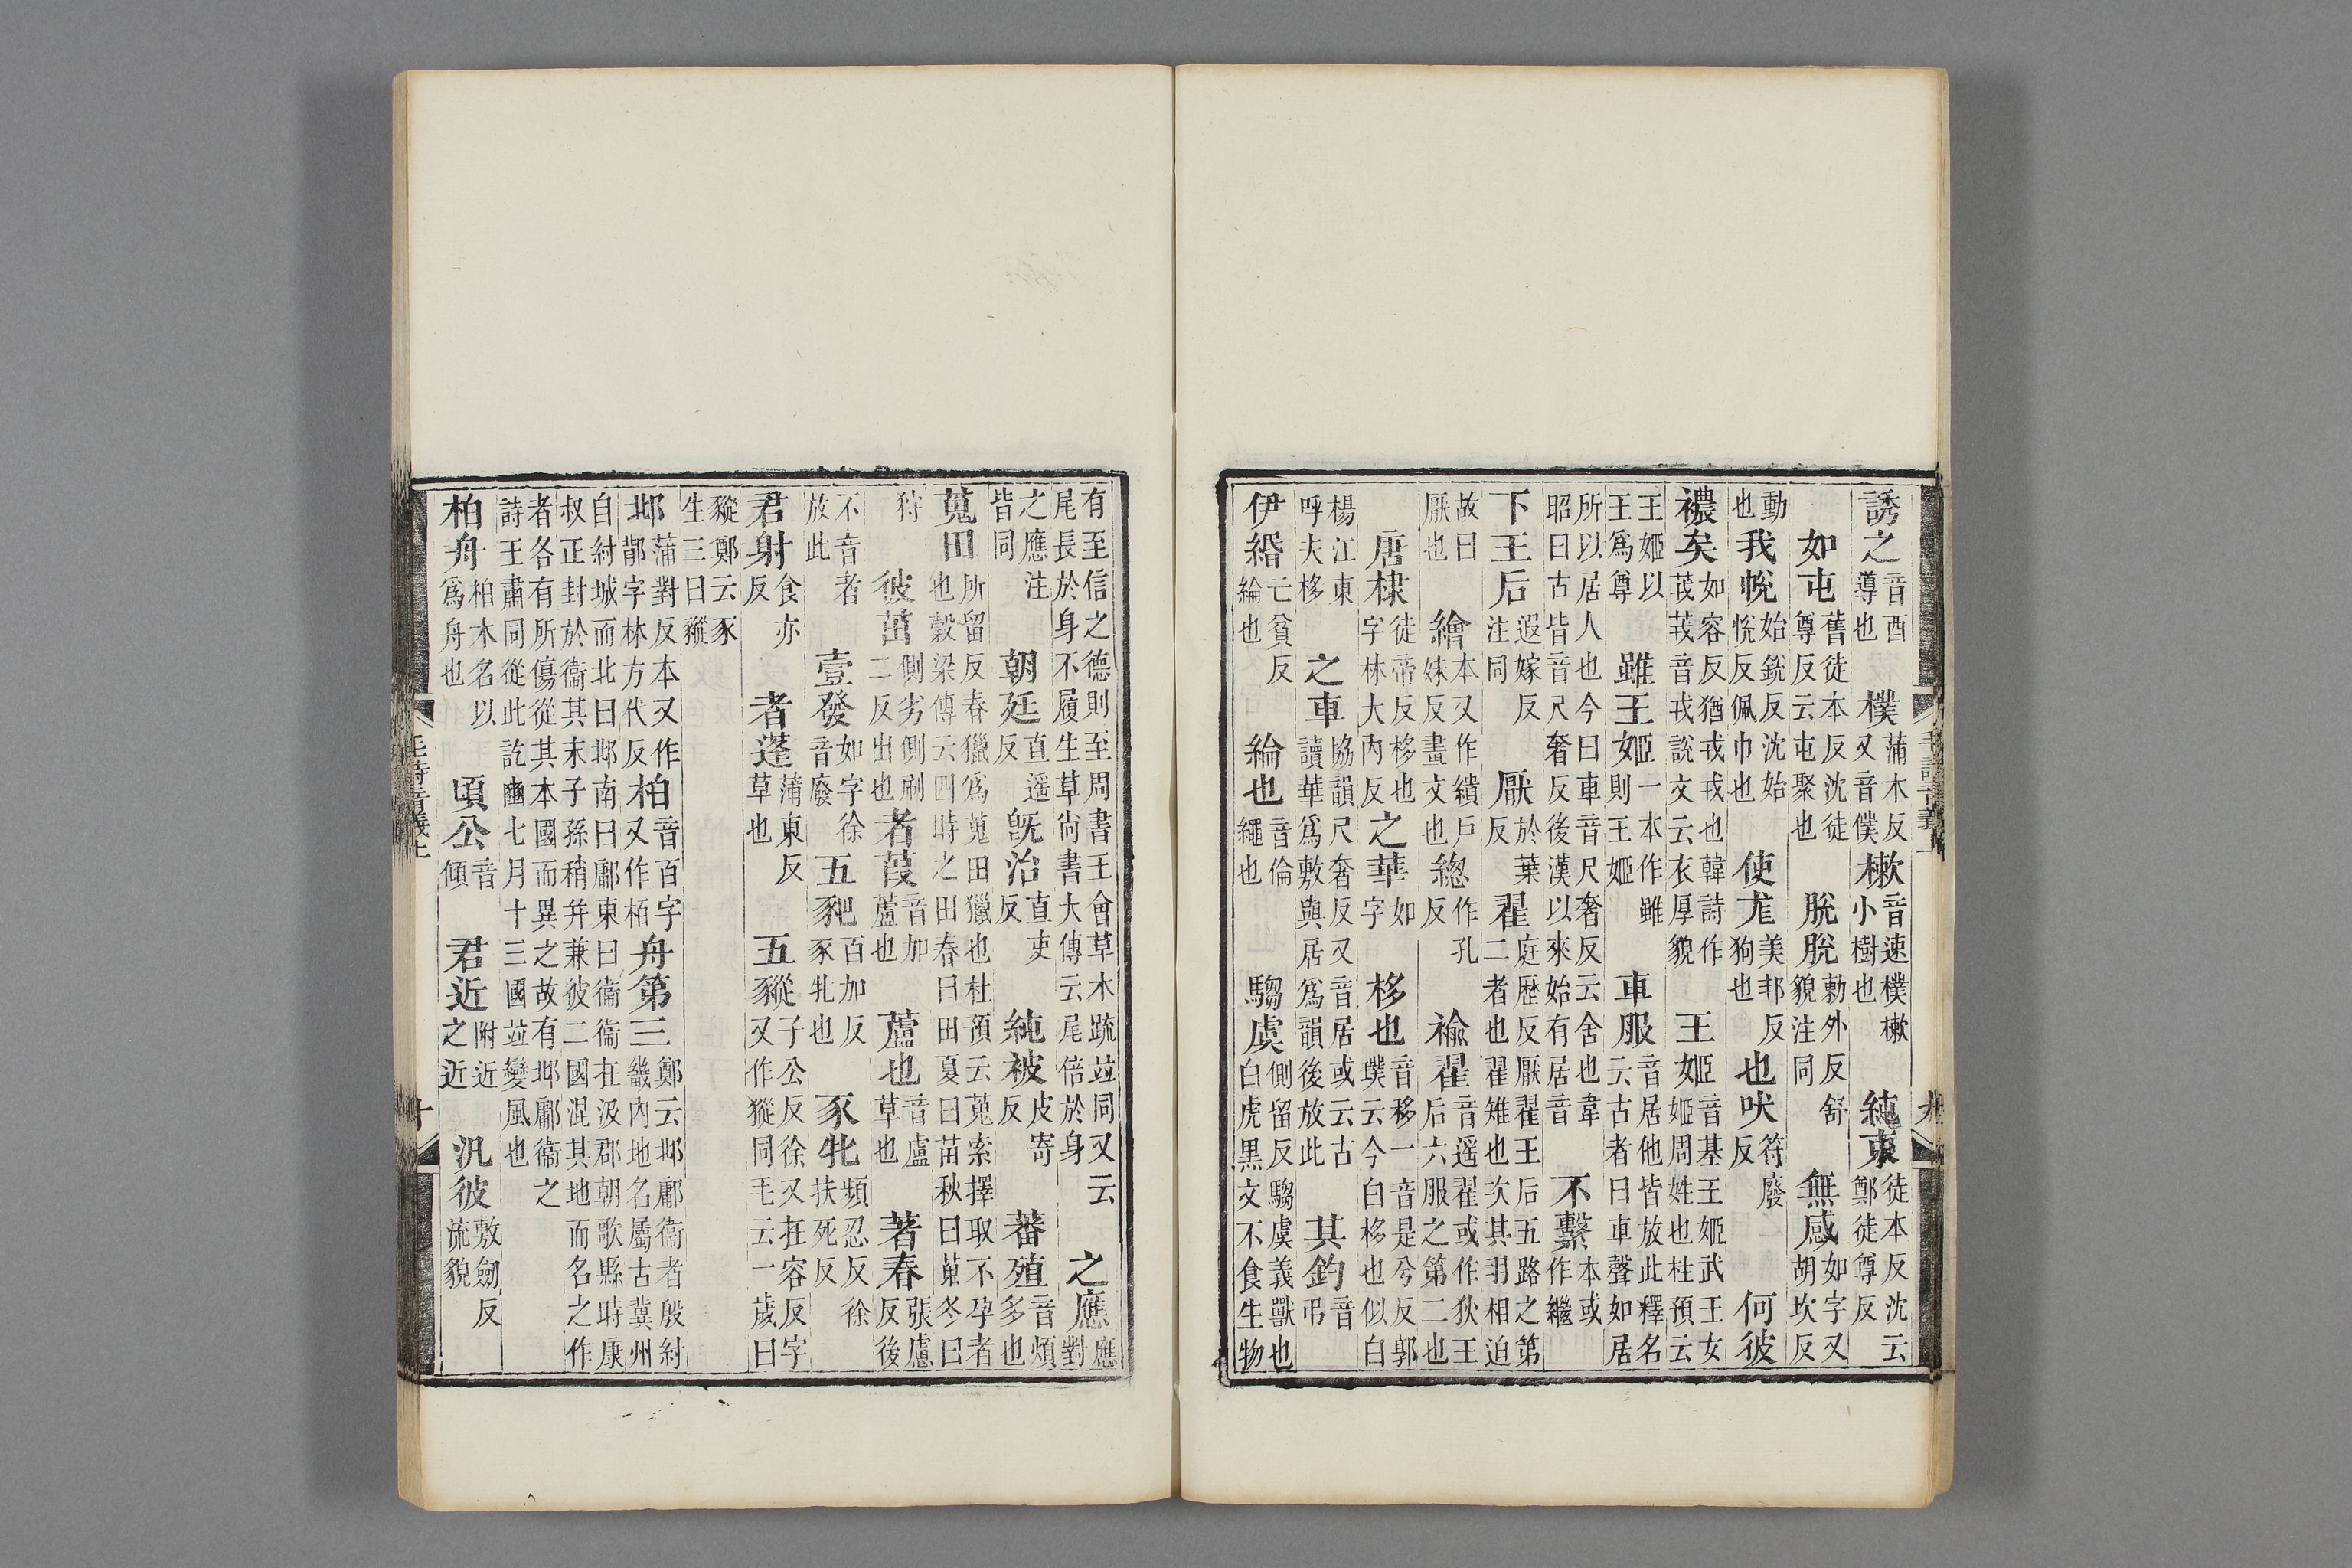 誘之音酉導也樸蒲木反又音僕樕音速樸樕小樹也純束徒本反沈云鄭徒尊反
如屯舊徒本反沈徒尊反云屯聚也脫脫勑外反舒貌注同無感如字又胡坎反
動也我帨始銳反沈始悅反佩巾也使尨美邦反狗也也吠符廢反何彼
襛矣如容反猶戎戎也韓詩作茙茙音戎說文云衣厚貌王姬音基王姬武王女姬周姓也杜預云
王姬以王爲尊雖王姬一本作雖則王姬車服音居他皆放此釋名云古者曰車聲如居
所以居人也今曰車音尺奢反云舍也韋昭曰古皆音尺奢反後漢以來始有居音不繫本或作繼
下王后遐嫁反注同厭於葉反翟庭歷反厭翟王后五路之第二者也翟雉也次其羽相迫
故曰厭也繪本又作繢戶妹反畫文也緫作孔反褕翟音遥翟或作狄王后六服之第二也
唐棣徒帝反栘也字林大內反之華如字栘也音移一音是兮反郭璞云今白栘也似白
楊江東呼夫栘之車協韻尺奢反又音居或云古讀華爲敷與居爲韻後放此其釣音弔
伊緡亡貧反綸也綸也音倫繩也騶虞側留反騶虞義獸也白虎黑文不食生物
毛詩音義上 九
有至信之德則至周書王會草木䟽竝同又云尾長於身不履生草尚書大傳云尾倍於身之應應對
之應注皆同朝廷直遥反旣治直吏反純被皮寄反蕃殖音煩多也
蒐田所留反春獵爲蒐田獵也杜預云蒐索擇取不孕者也穀梁傳云四時之田春曰田夏曰苗秋曰蒐冬曰
狩彼茁側劣側刷二反出也者葭音加蘆也蘆也音盧草也著春張慮反後
不音者放此壹發如字徐音廢五豝百加反豕牝也豕牝頻忍反徐扶死反
君射食亦反者蓬蒲東反草也五豵子公反徐又在容反字又作猣同毛云一歲曰
豵鄭云豕生三曰豵
邶蒲對反本又作鄁字林方代反柏音百字又作栢舟第三鄭云邶鄘衞者殷紂畿內地名屬古冀州
自紂城而北曰邶南曰鄘東曰衞衞在汲郡朝歌縣時康叔正封於衞其末子孫稍并兼彼二國混其地而名之作
者各有所傷從其本國而異之故有邶鄘衞之詩王肅同從此訖豳七月十三國竝變風也
柏舟柏木名以爲舟也頃公音傾君近附近之近汎彼敷劒反流貌
毛詩音義上 十